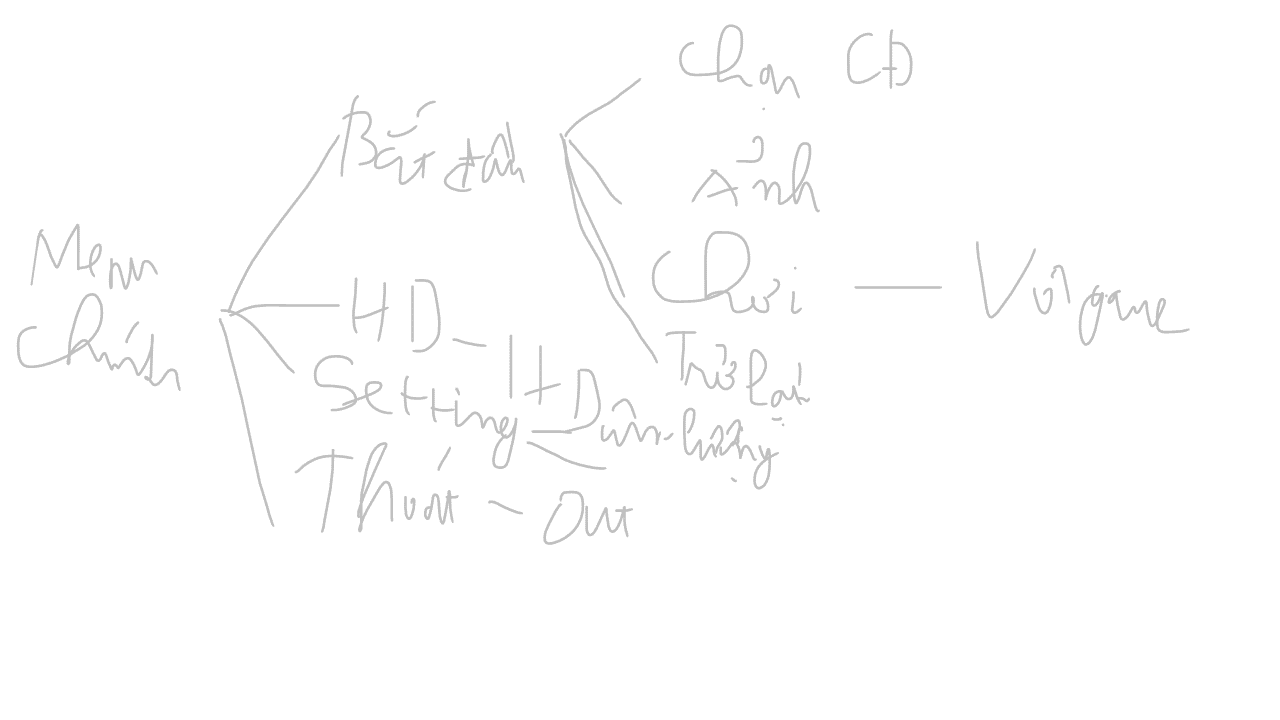 Menu
chính
Bắt đầu
Chọn CĐ
Ảnh
Chơi
Vô game
Trở lại
HD
HD
Setting
Âm lượng
Thoát
Out